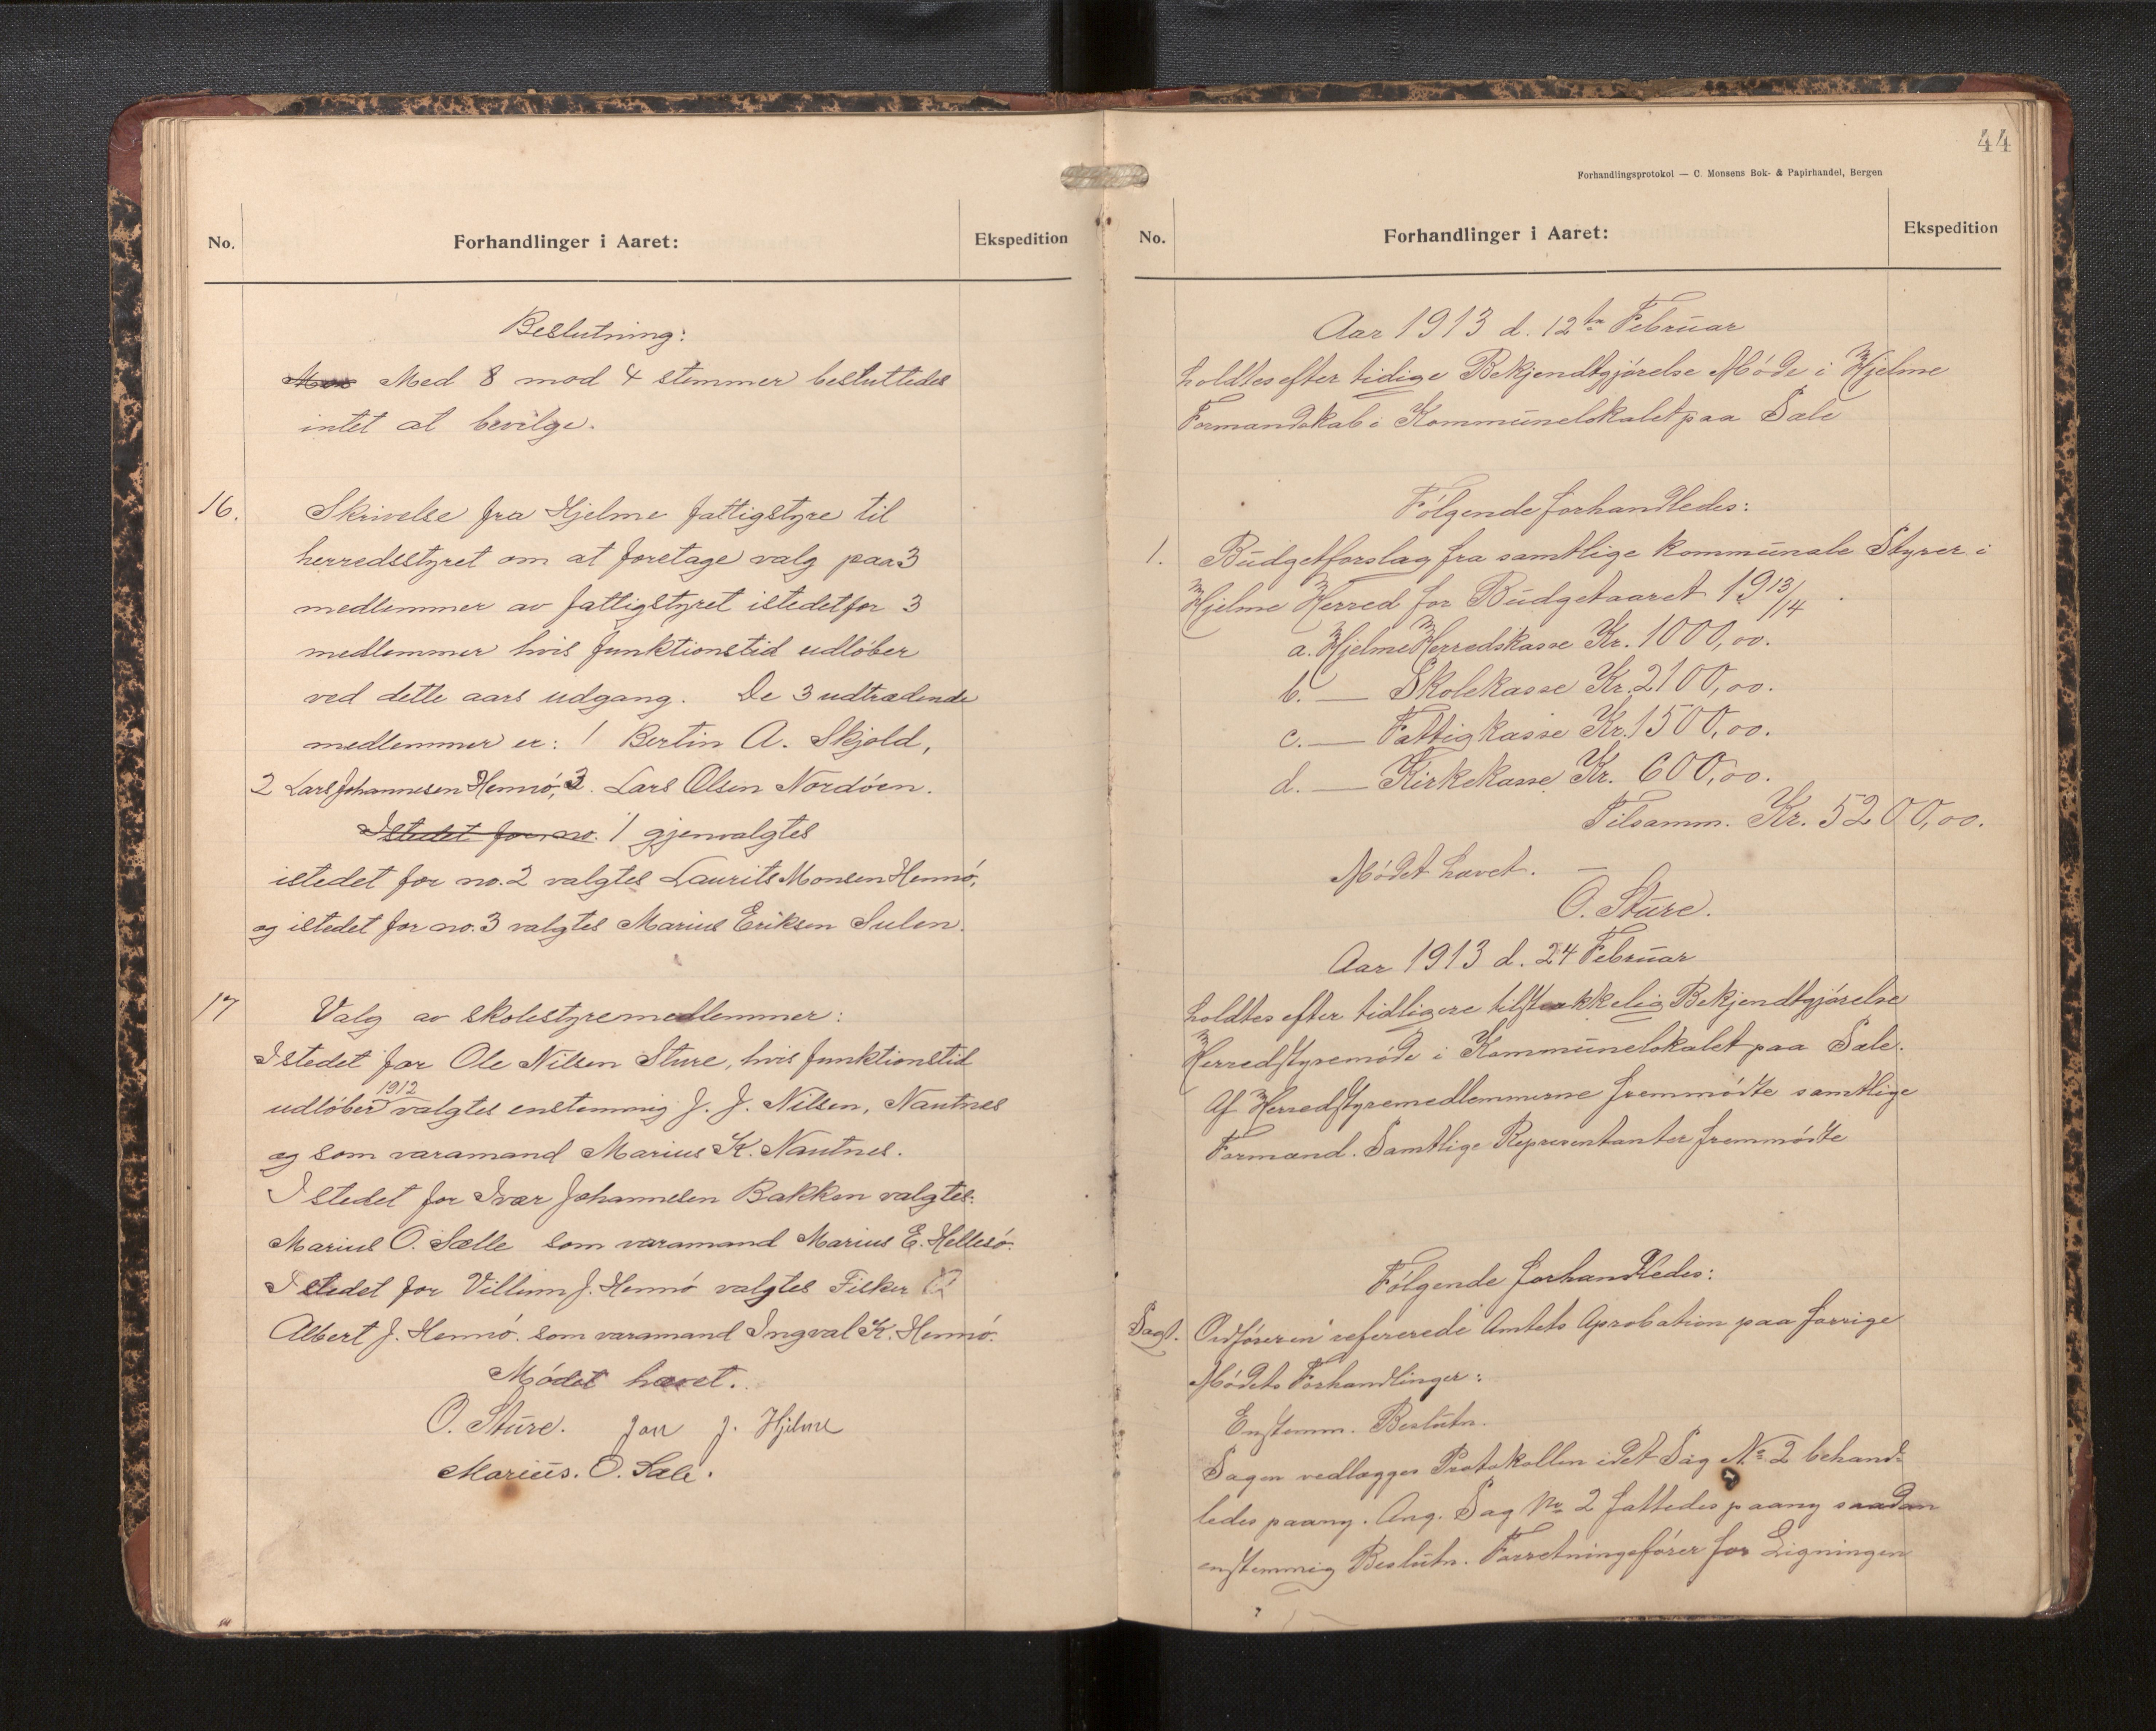 No.
Forhandlinger i Aaret:
Ekspedition
Beslutning:
Med 8 mod 4 stemmer besluttedes
intet at bevilge.
16. Skrivelse fra Hjelme fattigstyre til
herredsstyret om at foretage valg paa 3
medlemmer av fattigstyret istedetfor 3
medlemmer hvis funktionstid udløber
ved dette aars udgang. De 3 udtrædende
medlemmer er: 1 Bertin A. Skjold,
2 Lars Johannesen Hennö, 3. Lars Olsen Nordöen.
Istedet for no. 1 gjenvalgtes
istedet for no. 2 valgtes Laurits Monsen Hennö,
og istedet for no. 3 valgtes Marius Eriksen Sulen.
17 Valg av skolestyremedlemmer:
Istedet for Ole Nilsen Sture, hvis funktionstid
udløber 1912 valgtes enstemmig J. J. Nilsen, Nautnes
og som varamand Marius K. Nautnes.
Istedet for Ivar Johannesen Bakken valgtes:
Marius O. Sælle som varamand Marius E. Hellesö.
Istedet for Villum J. Hennö valgtes Fisker
Albert J. Hennö. som varamand Ingval K. Hennö.
Mödet hævet.
O. Sture. Jon J. Hjelme
Marius. O. Sæle.
44
Forhandlingsprotokol — C. Monsens Bok- & Papirhandel, Bergen
No.
Forhandlinger i Aaret:
Ekspedition
Aar 1913 d. 12te Februar
holdtes efter tidige Bekjendtgjørelse Møde i Hjelme
Formandskab i Kommunelokalet paa Sæle
Følgende forhandledes:
1. Budgetforslag fra samtlige kommunale Styrer i
Hjelme Herred for Budgetaaret 1913/14.
a. Hjelme Herredskasse Kr. 1000,00.
b. — Skolekasse Kr. 2100,00.
c. — Fattigkasse Kr. 1500,00.
d. — Kirkekasse Kr. 600,00.
Tilsamm. Kr. 5200,00.
Mødet hævet. —
O. Sture.
Aar 1913 d. 24 Februar
holdtes efter tidligere tilstrækkelig Bekjendtgjørelse
Herredstyremøde i Kommunelokalet paa Sæle.
Af Herredstyremedlemmerne fremmødte samtlige
Formænd. Samtlige Representanter fremmødte
Følgende forhandledes:
Sag 1. Ordføreren refererede Amtets Aprobation paa forrige
Mødets Forhandlinger:
Enstemm. Beslutn.
Sagen vedlægges Protokollen idet Sag No 2 behand-
ledes paany. Ang. Sag No 2 fattedes paany saadan
enstemmig Beslutn. Forretningsfører for Ligningen